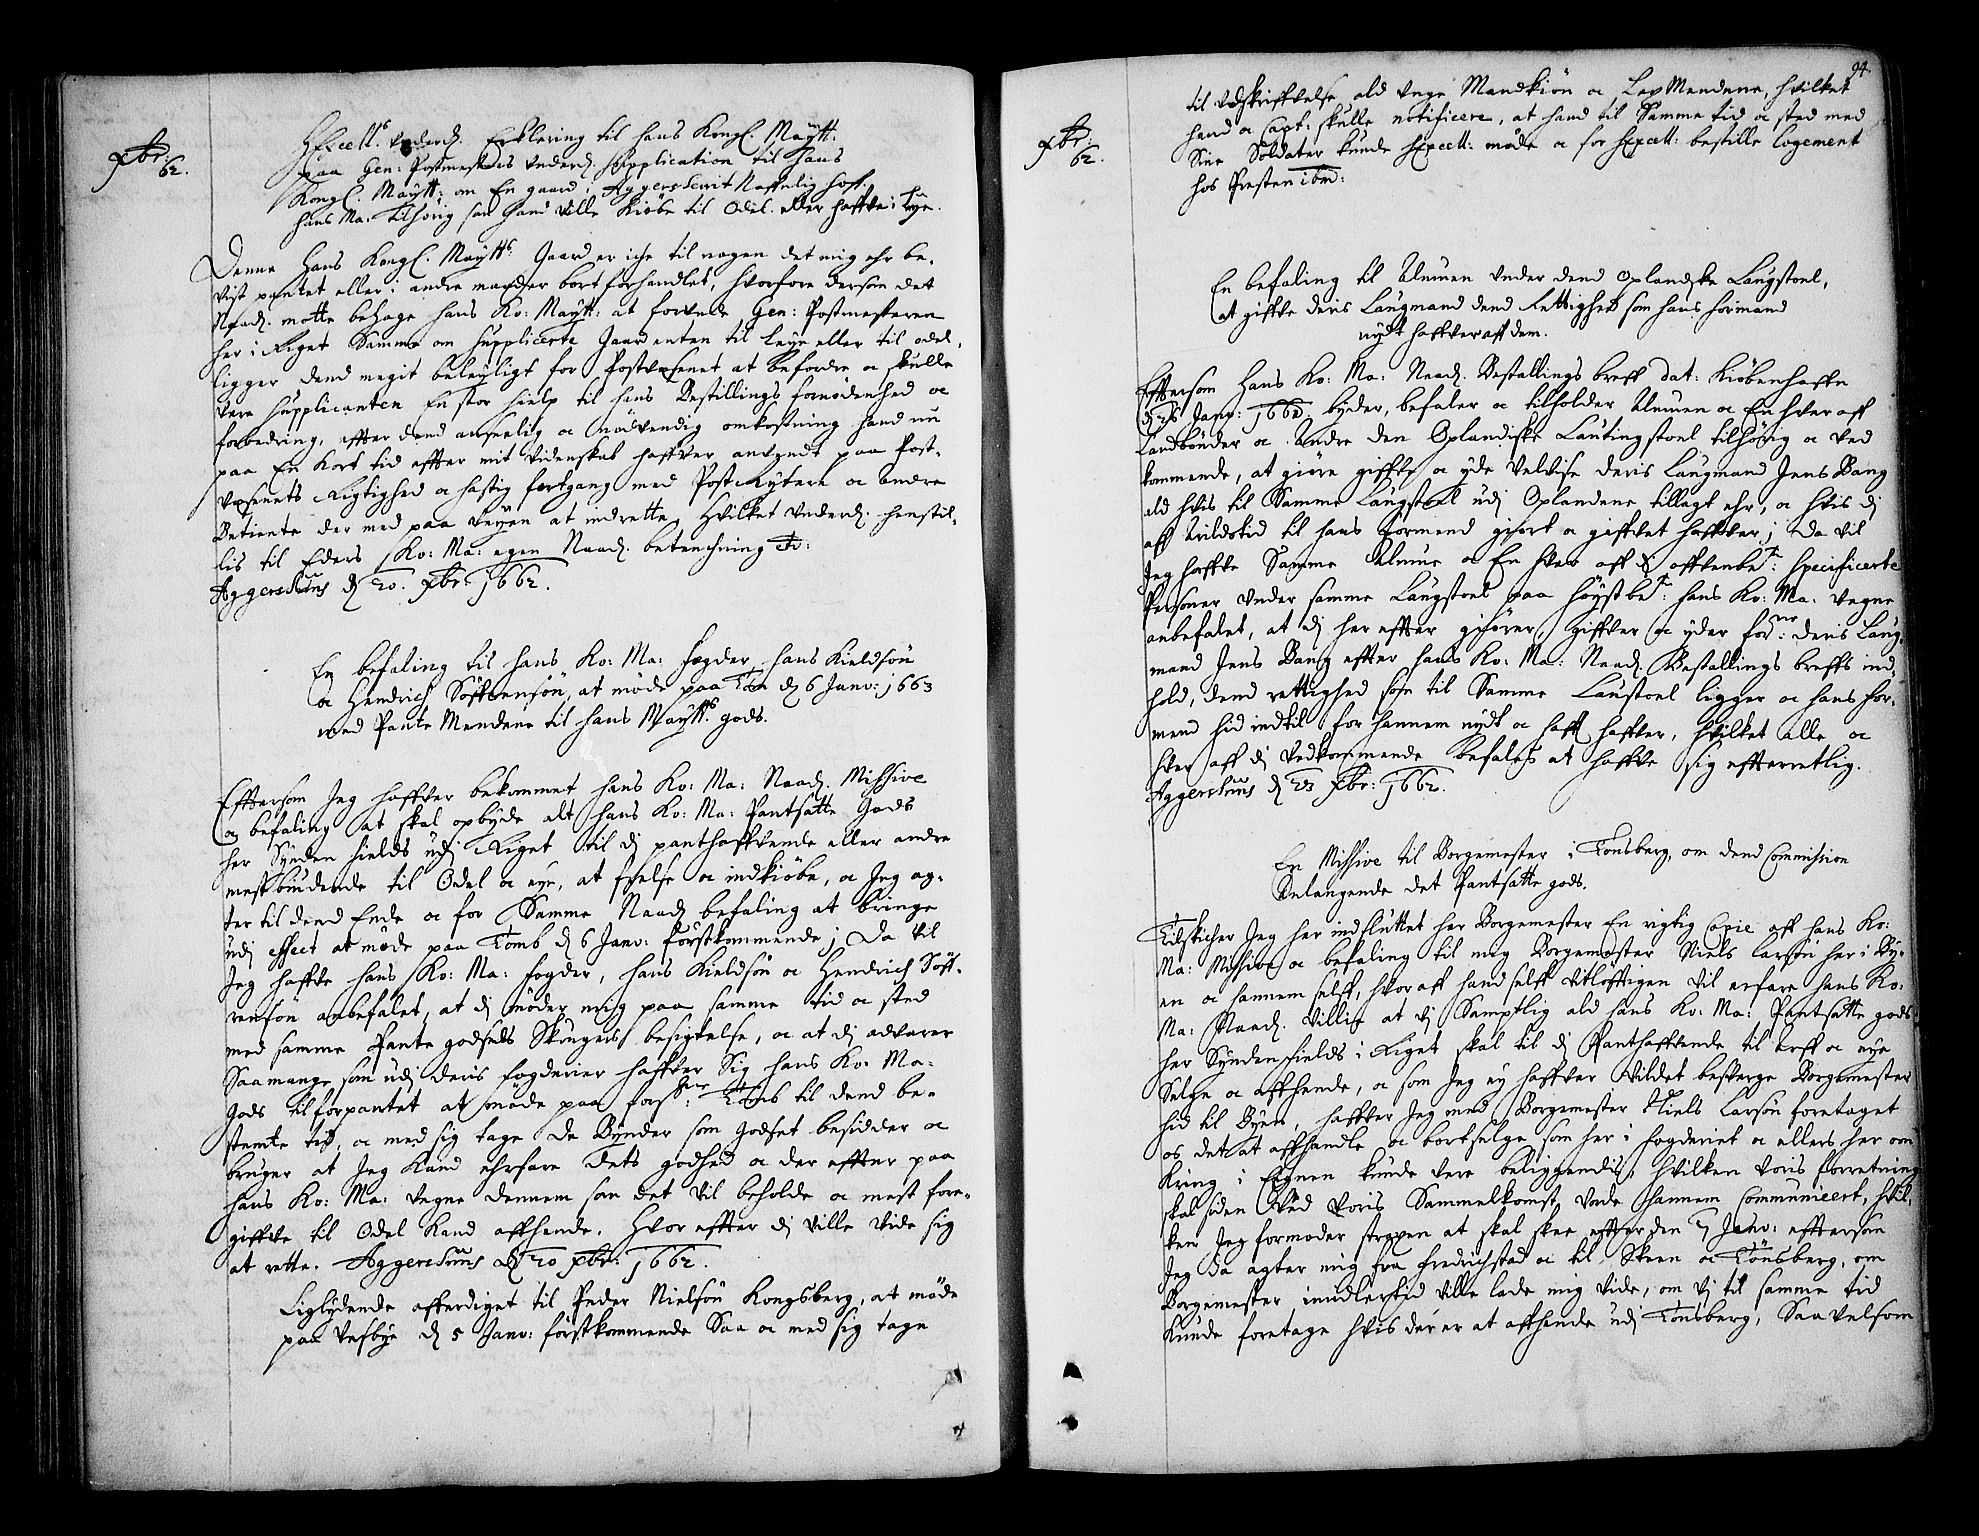 xbr:
62.
HExcell:s underd. Erklering til hans Kongl. Maytt:
paa Gen: Postmesters underd. Supplication til Hans
Kongl. Maytt: om En gaard i Aggers
hans Ma: tilhörig som hand ville Kiöbe til Odel. eller haffve i Leye.
Denne Hans Kongl. Maytts Gaard er iche til nogen det mig ehr be-
vist pantet eller i andre maader bortforhandlet, hvorfore dersom det
Naad. motte behage hans Ko: Maytt: at forunde Gen: Postmesteren
her i Riget Samme om Supplicerte Gaard enten til Leye eller til odel,
ligger dend megit beleyligt for Postvesenet at befordre oc skulle
vere Supplicanten En stor hielp til hans Bestillings fornödenhed oc
forbedring, effter dend anseelig oc Nödvendig omkostning hand nu
paa En kort tid effter mit videnskab haffver anvendt paa Post-
vesenets Rigtighed oc hastig fortgang med Post Rytere oc andre
Betiente der med paa veyen at indrette, Hvilket underd. henstil-
lis til Eders Ko: Ma: egen Naad. betenchning
Aggershuus d 20. xbr: 1662.
En befaling til hans Ko: Ma: fogder hans Kieldsön
oc Hendrich Söffrensön, at möde paa Tom d 6 Janv: 1663
med Pante Mendene til hans Maytts gods.
Effterson Jeg haffver bekommet hans Ko: Ma: Naad. Missive
oc befaling at skal opbyde alt hans Ko: Ma: Pantsatte Gods
her Synden fields udj Riget til dj panthaffvende eller andre
mestbiudende til Odel oc eye, at frelse oc indkiöbe, oc Jeg ag-
ter til dend Ende oc for Samme Naad. befaling at bringe
udj effect at möde paa Tomb d 6 Janv: förstkommende; Da vil
Jeg haffve hans Ko: Ma: fogder, hans Kieldsön oc Hendrich Söff-
rensön anbefalet, at dj möder mig paa samme tid oc sted
med samme Pante godses besigtelse, oc at dj advarer
Saamange som udj deris fogderier haffver Sig hans Ko: Ma:
Gods tilforpantet at möde paa Tomb til dend be-
stemte tid, oc med sig tage de Bynder som godset besidder oc
bruger at Jeg kand erfare dets godhed oc der effter paa
hans Ko: Ma: vegne dennem som det vil beholde oc mest fore-
giffve til Odel kand affhende. Hvor effter dj ville vide sig
at rette. Aggershuus d 20 xbr: 1662.
Liglydende afferdiget til Peder Nielsön Kongsberg, at möde
paa Vesbye d 5 Janv: förstkommende Saa oc med sig tage
94.
xbr:
62.
til udskriffvelse ald unge Mandkiön oc LegMendene, hvilket
hand oc Capt: skulle notificere, at hand til Samme tid oc sted med
Sine Soldater kunde HExcell: möde oc for HExcell: bestille logement
hos Presten ibm:
En befaling til Almuen under dend Oplandske Laugstoel,
at giffve deris Laugmand dend Rettighed som hans formand
nydt haffver aff dem.
Effterson Hans Ko: Ma: Naad. Bestallings breff dat: Kiöbenhaffn
d 26 Janv: 1662. byder, befaler oc tilholder Almuen oc En hver aff
Landbönder oc Andre den Oplandiske Lautingstoel tilhörig oc ved
kommende, at giöre giffve oc yde velvise deris Laugmand Jens Bang
ald hvis til Samme Laugstoel udj Oplandene tillagt ehr, oc hvis dj
aff Arildstid til hans formend giort oc giffvet haffver; Da vil
Jeg haffve Samme Almue oc En hver aff dj offvenbet: Specificerte
Personer under samme Laugstoel paa höystbet: hans Ko: Ma: vegne
anbefalet, at dj her effter giörer, giffver oc yder forne: deris Laug-
mand Jens Bang effter hans Ko: Ma: Naad. Bestallings breffs ind-
hold, dend rettighed som til Samme Laustoel ligger oc hans for-
mend hid indtil for hannem nydt oc hafft haffver, hvilket alle oc
hver aff dj vedkommende befales at haffve sig effterretlig.
Aggershuus d 23 xbr: 1662.
En Missive til Borgemester i Tonsberg, om dend Commission
Anlangende det Pantsatte gods.
Tilskicher Jeg her indsluttet her Borgemester En rigtig Copie aff hans Ko:
Ma: Missive oc befaling til mig Borgemester Niels Larsön her i By-
en oc hannem selff, hvoraff hand selff vitlöfftigen vil erfare hans Ko:
Ma: Naad. villie at vj Samptlig ald hans Ko: Ma: Pantsatte gods
her Synden fields i Riget skal til dj Panthaffvende til Arff oc eye
Selge oc affhende, oc som Jeg ey haffver vildet besverge Borgemester
hid til Byen, haffver Jeg med Borgemester Niels Larsön foretaget
os det at affhandle oc bortselge som her i fogderiet oc ellers her om
kring i Egnen kunde vere beliggendis, hvilken voris forretning
skal siden ved voris Sammelkomst vorde hannem Communicert, hvil-
ken Jeg formoder strexen at skal skee effter den 7 Janv: effterson
Jeg da agter mig fra fredrichstad oc til Skeen oc Tönsberg, om
Borgemester imidlertid ville lade mig vide, om vj til samme tid
kunde foretage hvis der er at affhende udj Tonsberg, Saavelsom